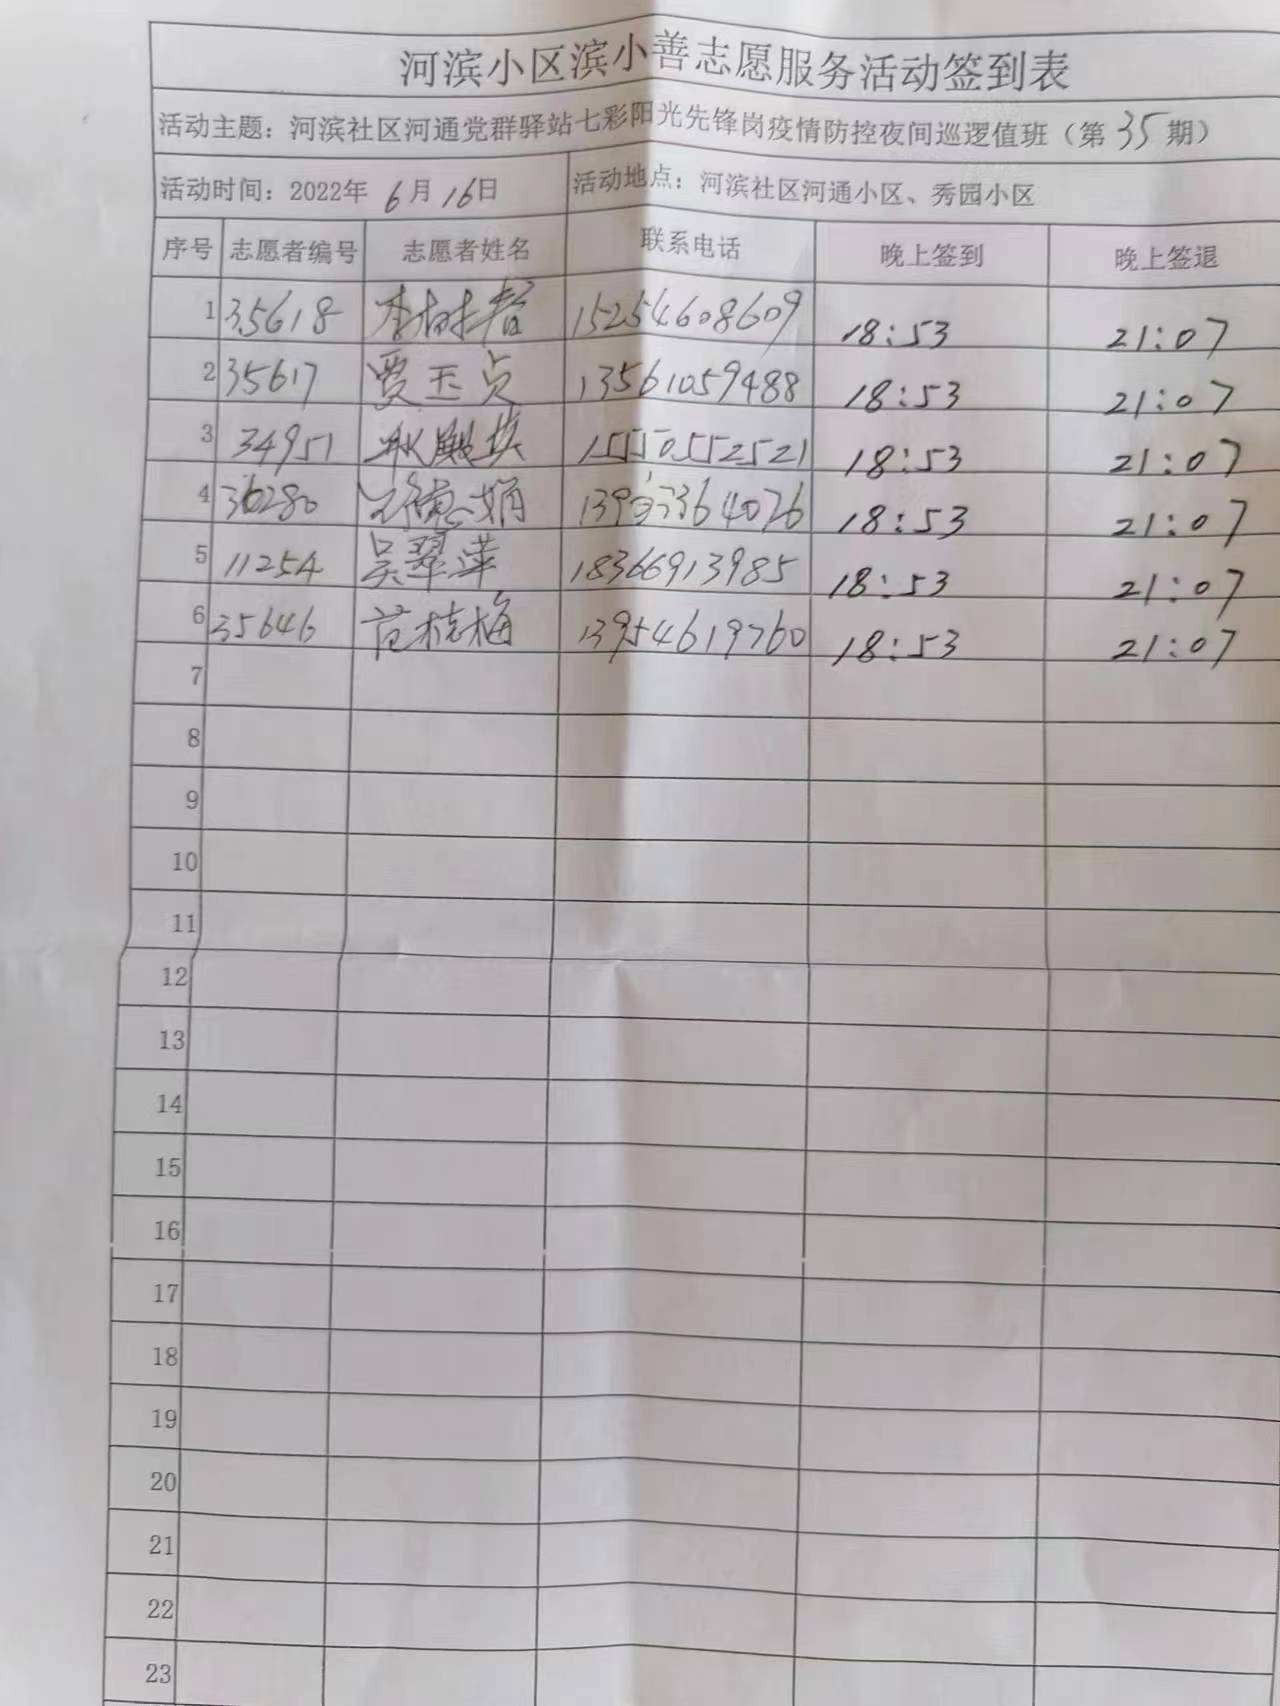 河滨小区滨小善志愿服务活动签到表
活动主题：河滨社区河通党群驿站七彩阳光先锋岗疫情防控夜间巡逻值班（第35期）
活动时间：2022年6月16日 活动地点：河滨社区河通小区、秀园小区
序号 志愿者编号 志愿者姓名 联系电话 晚上签到 晚上签退
1 35618 李树智 15254608609 18:53 21:07
2 35617 贾玉贞 13561059488 18:53 21:07
3 34951 15550552521 18:53 21:07
4 36280 18:53 21:07
5 11254 吴翠萍 18366913985 18:53 21:07
6 35646 范桂梅 13954619760 18:53 21:07
7
8
9
10
11
12
13
14
15
16
17
18
19
20
21
22
23